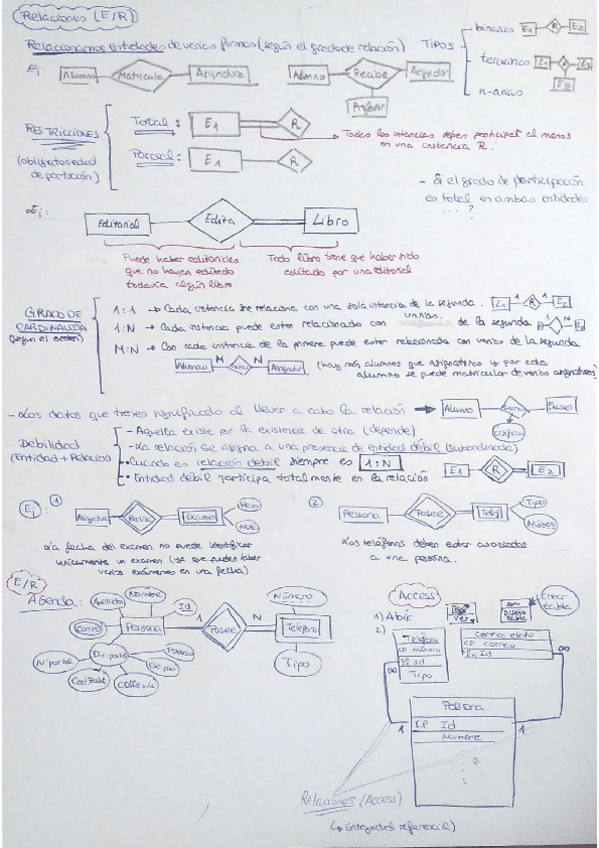 Relaciones (E/R)
Relacionamos entidades de varias formas (según el grado de relación) TIPOS
binarias E1 R E2
ternarias E1 R
E3
n-arias
Ej: Alumno Matricula Asignatura
Alumno Recibe Asignatur
Profesor
RESTRICCIONES
(obligatoriedad
Total: E1 R
Todas las instancias deben participar al menos
en una instancia R.
Parcial: E1 R
- Si el grado de participación
es total en ambas entidades
...?
Ej:
Editorial Edita Libro
Puede haber editoriales
que no hayan editado
todavía algún libro
Todo libro tiene que haber sido
editado por una editorial
GRADO DE
CARDINALIDA
(según el orden)
1:1 → Cada instancia se relaciona con una sola intancia de la segunda. E1 1 R 1 E2
1:N → Cada instancia puede estar relacionado con varias de la segunda
M:N → Con cada instancia de la primera puede estar relacionada con varias de la segunda
Alumno N N Asignatur
(hay más alumnos que asignaturas y por cada
alumno se puede matricular de varias asignaturas)
- Los datos que tienen significado al llevar a cabo la relación → Alumno Examen
Debilidad
(Entidad + Relación)
- Aquella existe por la existencia de otra (depende)
- La relación se asigna a una presencia de entidad débil (subordinada)
- Cuando es relación débil siempre es 1:N
- Entidad débil participa totalmente en la relación
E1 R E2
Ej:
1
Asignatura Realiza Examen
Nota
La fecha del examen no puede identificar
unicamente un examen (ya que pueden haber
varios exámenes en una fecha)
2
Persona Posee Telef
Tipo
Número
Los teléfonos deben estar asociados
a una persona.
E/R
Agenda:
Apellido
Nombre
Id
Correo
Persona 1 Posee N Teléfono
Número
Tipo
Dir. postal
Nº portal
Cod Postal
Calle
Access
1) Abrir
2)
Crear
table
Teléfono
CP número
Id
Tipo
∞
correo electo
CP correo
Id
∞
Persona
1 CP Id 1
Nombre
Relaciones (Access)
↳ integridad referencial)